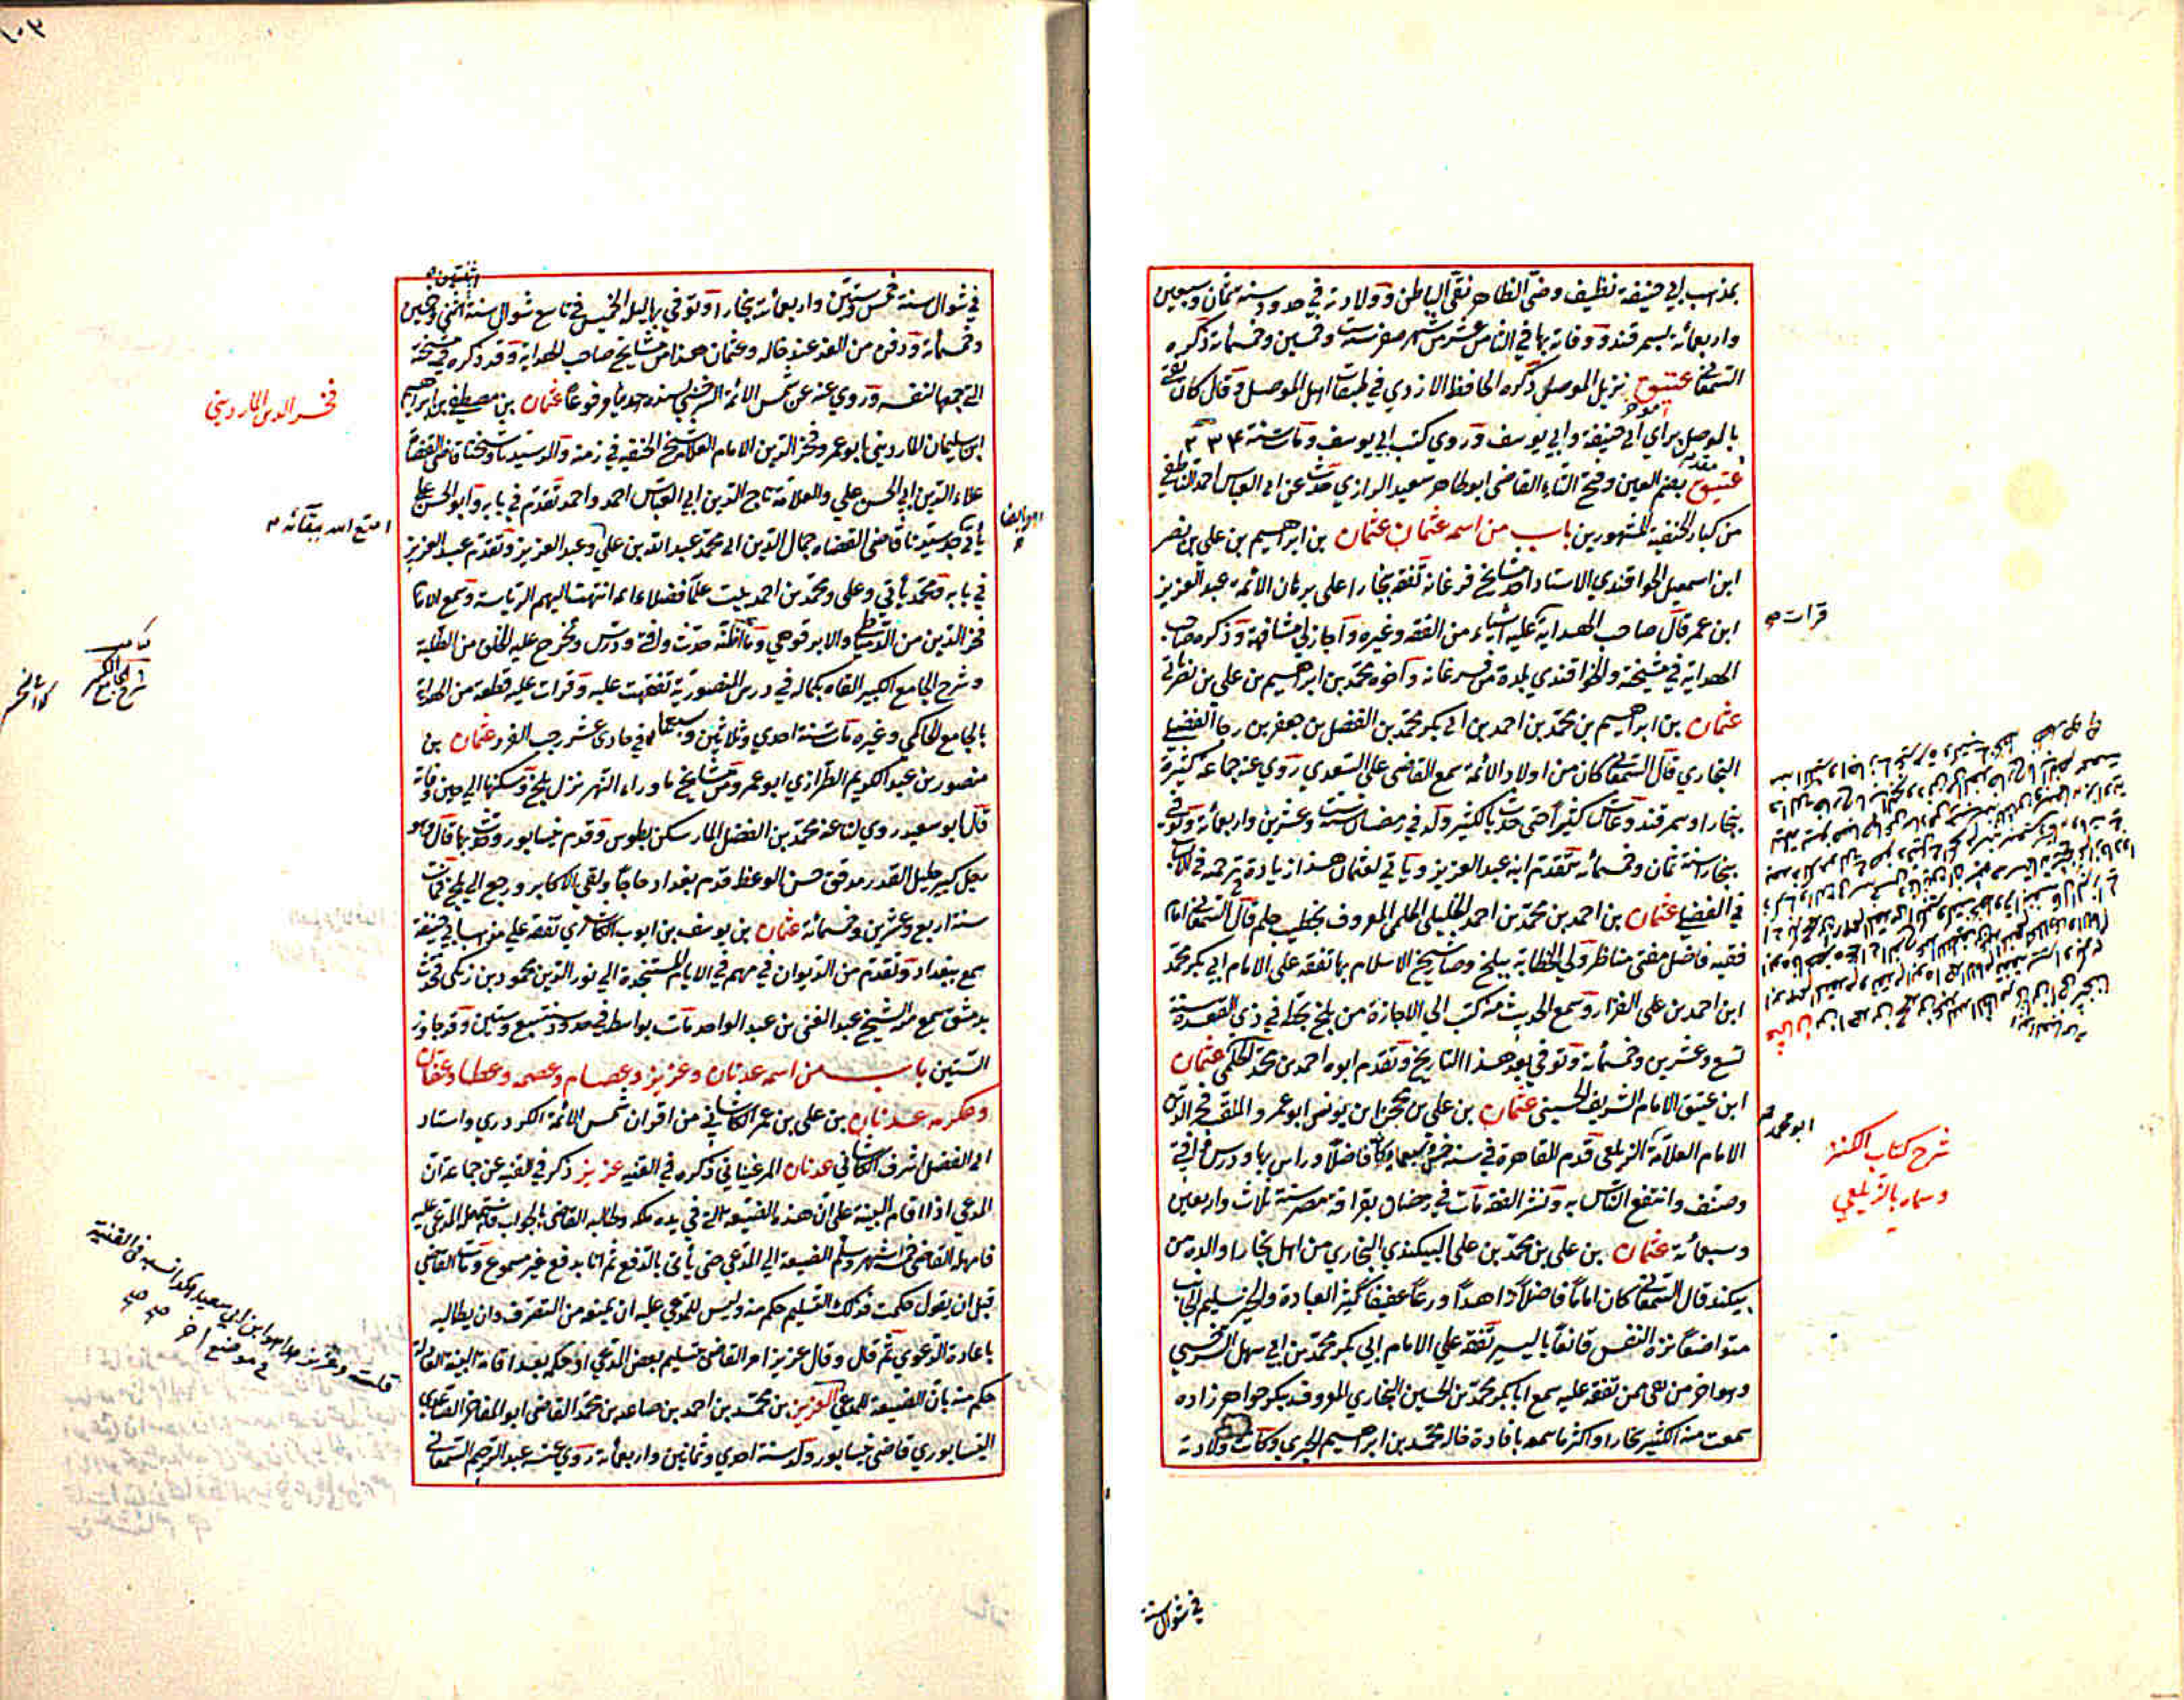 بمذهب ابي حنيفة نظيف وضئ الظاهر نقي الباطن وولادته في حدود سنة ثمان وسبعين
واربعمائة بسمرقند ووفاته بها في الثامن عشر من شهر صفر سنة ست وخمسين وخمسمائة ذكره
السمعاني عتيق نزيل الموصل ذكره الحافظ الازدي في طبقات اهل الموصل وقال كان يفتي
بالموصل براي ابي حنيفة وابي يوسف وروي كتب ابي يوسف ومات سنة ٢٣٤
عتيق بضم العين وفتح التاء القاضي ابو طاهر سعيد الرازي حدث عن ابي العباس احمد الناطفي
من كبار الحنفية المشهورين باب من اسمه عثمان عثمان بن ابراهيم بن علي بن نصر
ابن اسمعيل الخواقندي الاستاد احد مشايخ فرغانة تفقه ببخارا على برهان الائمة عبد العزيز
ابن عمر قال صاحب الهداية عليه اشياء من الفقه وغيره واجاز لي مشافهة وذكره صاحب
الهداية في مشيخته والخواقندي بلدة من فرغانه واخوه محمد بن ابراهيم بن علي بن نصر ياتي
عثمان بن ابراهيم بن محمد بن احمد بن ابي بكر محمد بن الفضل بن جعفر بن رجا الفضلي
البخاري قال السمعاني كان من اولاد الائمة سمع القاضي علي السعدي روي عنه جماعة كثيرة
ببخارا وسمرقند وعاش كثيرا حتى حدث بالكثير ولد في رمضان سنة ست وعشرين واربعمائة وتوفي
ببخارا سنة ثمان وخمسمائة تقدم ابنه عبد العزيز وياتي لعثمان هذا زيادة ترجمة في الانساب
في الفضلي عثمان بن احمد بن محمد بن احمد الخليلي الحلمي المعروف بخطيب حلم قال السمعاني امام
فقيه فاضل مفتي مناظر ولي الخطابة ببلخ وصار شيخ الاسلام بها تفقه على الامام ابي بكر محمد
ابن احمد بن علي القزاز وسمع الحديث منه كتب الي الاجازة من بلخ بخطه في ذي القعدة سنة
تسع وعشرين وخمسمائة وتوفي بعد هذا التاريخ وتقدم ابوه احمد بن محمد الحلمي عثمان
ابن عتيق الامام الشريف الحسيني عثمان بن علي بن محجن ابن يونس ابو عمرو الملقب فخر الدين
الامام العلامة الزيلعي قدم القاهرة في سنة خمس وسبعمائة كان فاضلا وراس بها ودرس وافتى
وصنف وانتفع الناس به ونشر الفقه مات في رمضان بقرافة مصر سنة ثلاث واربعين
وسبعمائة عثمان بن علي بن محمد بن علي البيكندي البخاري من اهل بخارا والده من
بيكند قال السمعاني كان اماما فاضلا زاهدا ورعا عفيفا كثير العبادة والخير سليم الجانب
متواضعا نزه النفس قانعا باليسير تفقه علي الامام ابي بكر محمد بن ابي سهل السرخسي
وهو اخر من بقي ممن تفقه عليه سمع ابا بكر محمد بن الحسين البخاري المعروف ببكر خواهر زاده
سمعت منه الكثير ببخارا واكثر ما سمعه بافادة خاله محمد بن ابراهيم الخيري وكانت ولادته
قرات
ابو محمد
شرح كتاب الكنز
وسماه بالزيلعي
في شوال سنة
١٠٣
في شوال سنة خمس وستين واربعمائة ببخارا وتوفي بها ليلة الخميس في تاسع شوال سنة اثنتي وخمسين
وخمسمائة ودفن من الغد عند خاله وعثمان هذا من مشايخ صاحب الهداية وقد ذكره في مشيخته
التي جمعها لنفسه وروي عنه عن شمس الائمة السرخسي بسنده حديثا مرفوعا عثمان بن مصطفى بن ابراهيم
ابن سليمان المارديني ابو عمرو فخر الدين الامام العلامة شيخ الحنفية في زمنه والد سيدنا وشيخنا قاضي القضاة
علاء الدين ابي الحسن علي والعلامة تاج الدين ابي العباس احمد واحمد تقدم في بابه وابو الحسن علي
ياتي جد سيدنا قاضي القضاه جمال الدين ابي محمد عبد الله بن علي وعبد العزيز وتقدم عبد العزيز
في بابه ومحمد ياتي وعلى ومحمد بن احمد بيت علما فضلاء ائمه انتهت اليهم الرياسة وسمع الامام
فخر الدين من الدمياطي والابرقوهي وما اظنه حدث وافتى ودرس وتخرج عليه الخلق من الطلبة
وشرح الجامع الكبير القاه بكماله في درس المنصورية تفقهت عليه وقرات عليه قطعة من الهداية
بالجامع الحاكمي وغيره مات سنة احدي وثلاثين وسبعمائة في حادي عشر رجب الفرد عثمان بن
منصور بن عبد الكريم الطرازي ابو عمرو من مشايخ ما وراء النهر نزل بلخ وسكنها الي حين وفاته
قال ابو سعيد روي لنا عنه محمد بن الفضل المار سكن بطوس وقدم نيسابور وحدث بها قال وهو
رجل كبير جليل القدر مدقق حسن الوعظ قدم بغداد حاجا ولقي بالاكابر ورجع الي بلخ فمات
سنة اربع وعشرين وخمسمائة عثمان بن يوسف بن ايوب الكاشغري تفقه علي مذهب ابي حنيفة
سمع ببغداد وتقدم من الديوان في مهم في الايام المستنجدة الي نور الدين محمود بن زنكي فحدث
بدمشق سمع منه الشيخ عبد الغني بن عبد الواحد مات بواسط في حدود سنة سبع وستين وقد جاوز
الستين باب من اسمه عدنان وعزيز وعصام وعصمه وعطا وعفان
وعكرمه عدنان بن علي بن عمر الكاشاني من اقران شمس الائمة الكردري واستاد
ابي الفضل اشرف الكاشاني عدنان المرغيناني ذكره في القنيه عزيز ذكر في القنيه عن جماعة ان
المدعي اذا اقام البينة علي ان هذه الضيعة التي في يده ملكه وطالبه القاضي بالجواب فاستمهله المدعي عليه
فامهله القاضي خمسة اشهر وسلم الضيعة الي المدعي حتى يأتي بالدفع ثم اتا بدفع غير مسموع ومات القاضي
قبل ان يقول حكمت فذلك التسليم حكم منه وليس للمدعي عليه ان يمنعه من التصرف وان يطالبه
باعادة الدعوي ثم قال وقال عزيز امر القاضي بتسليم بعض المدعي او حكمه بعد اقامة البينة العادلة
حكم منه بان الضيعة للمدعي العزيز بن محمد بن احمد بن صاعد بن محمد القاضي ابو المفاخر الصاعدي
النيسابوري قاضي نيسابور ولد سنة احدي وثمانين واربعمائة روي عنه عبد الرحيم السمعاني
فخر الدين المارديني
امتع الله ببقائه
شرح الجامع الكبير
قلت وعزيز هذا هو ابن ابي سعيد هكذا نسبه في القنية
في موضع اخر